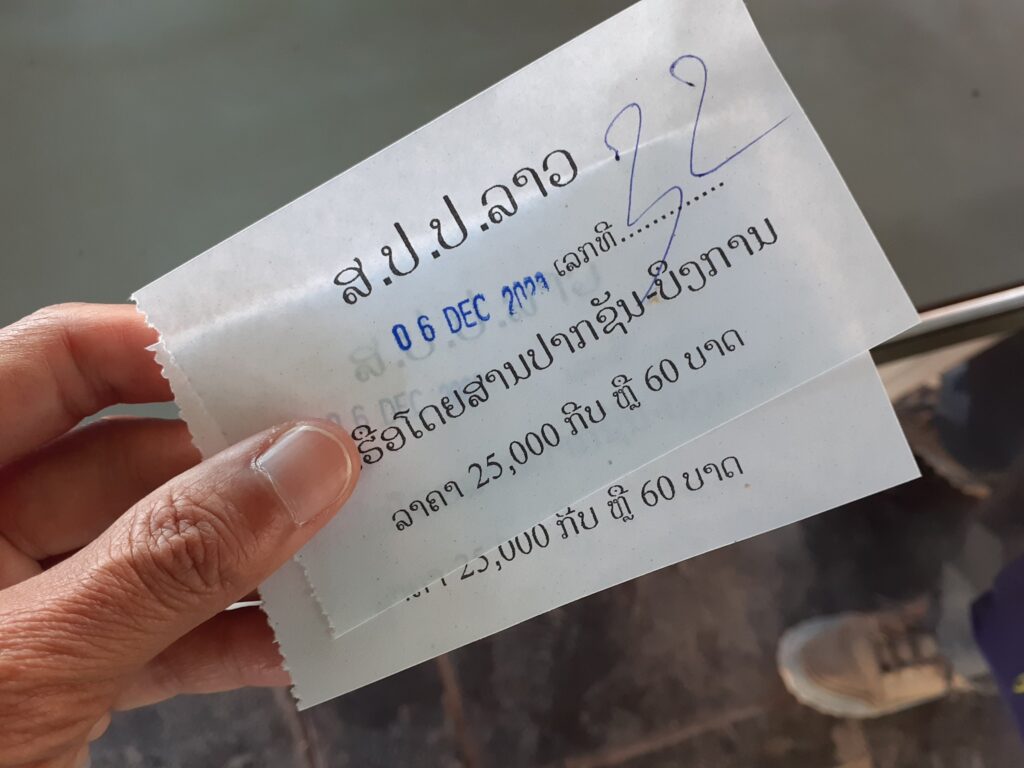 ສ.ປ.ປ.ລາວ
06 DEC 2023 ເລກທີ...............
ເຮືອໂດຍສານປາກຊັນ-ບຶງການ
ລາຄາ 25,000 ກີບ ຫຼື 60 ບາດ
25,000 ກີບ ຫຼື 60 ບາດ